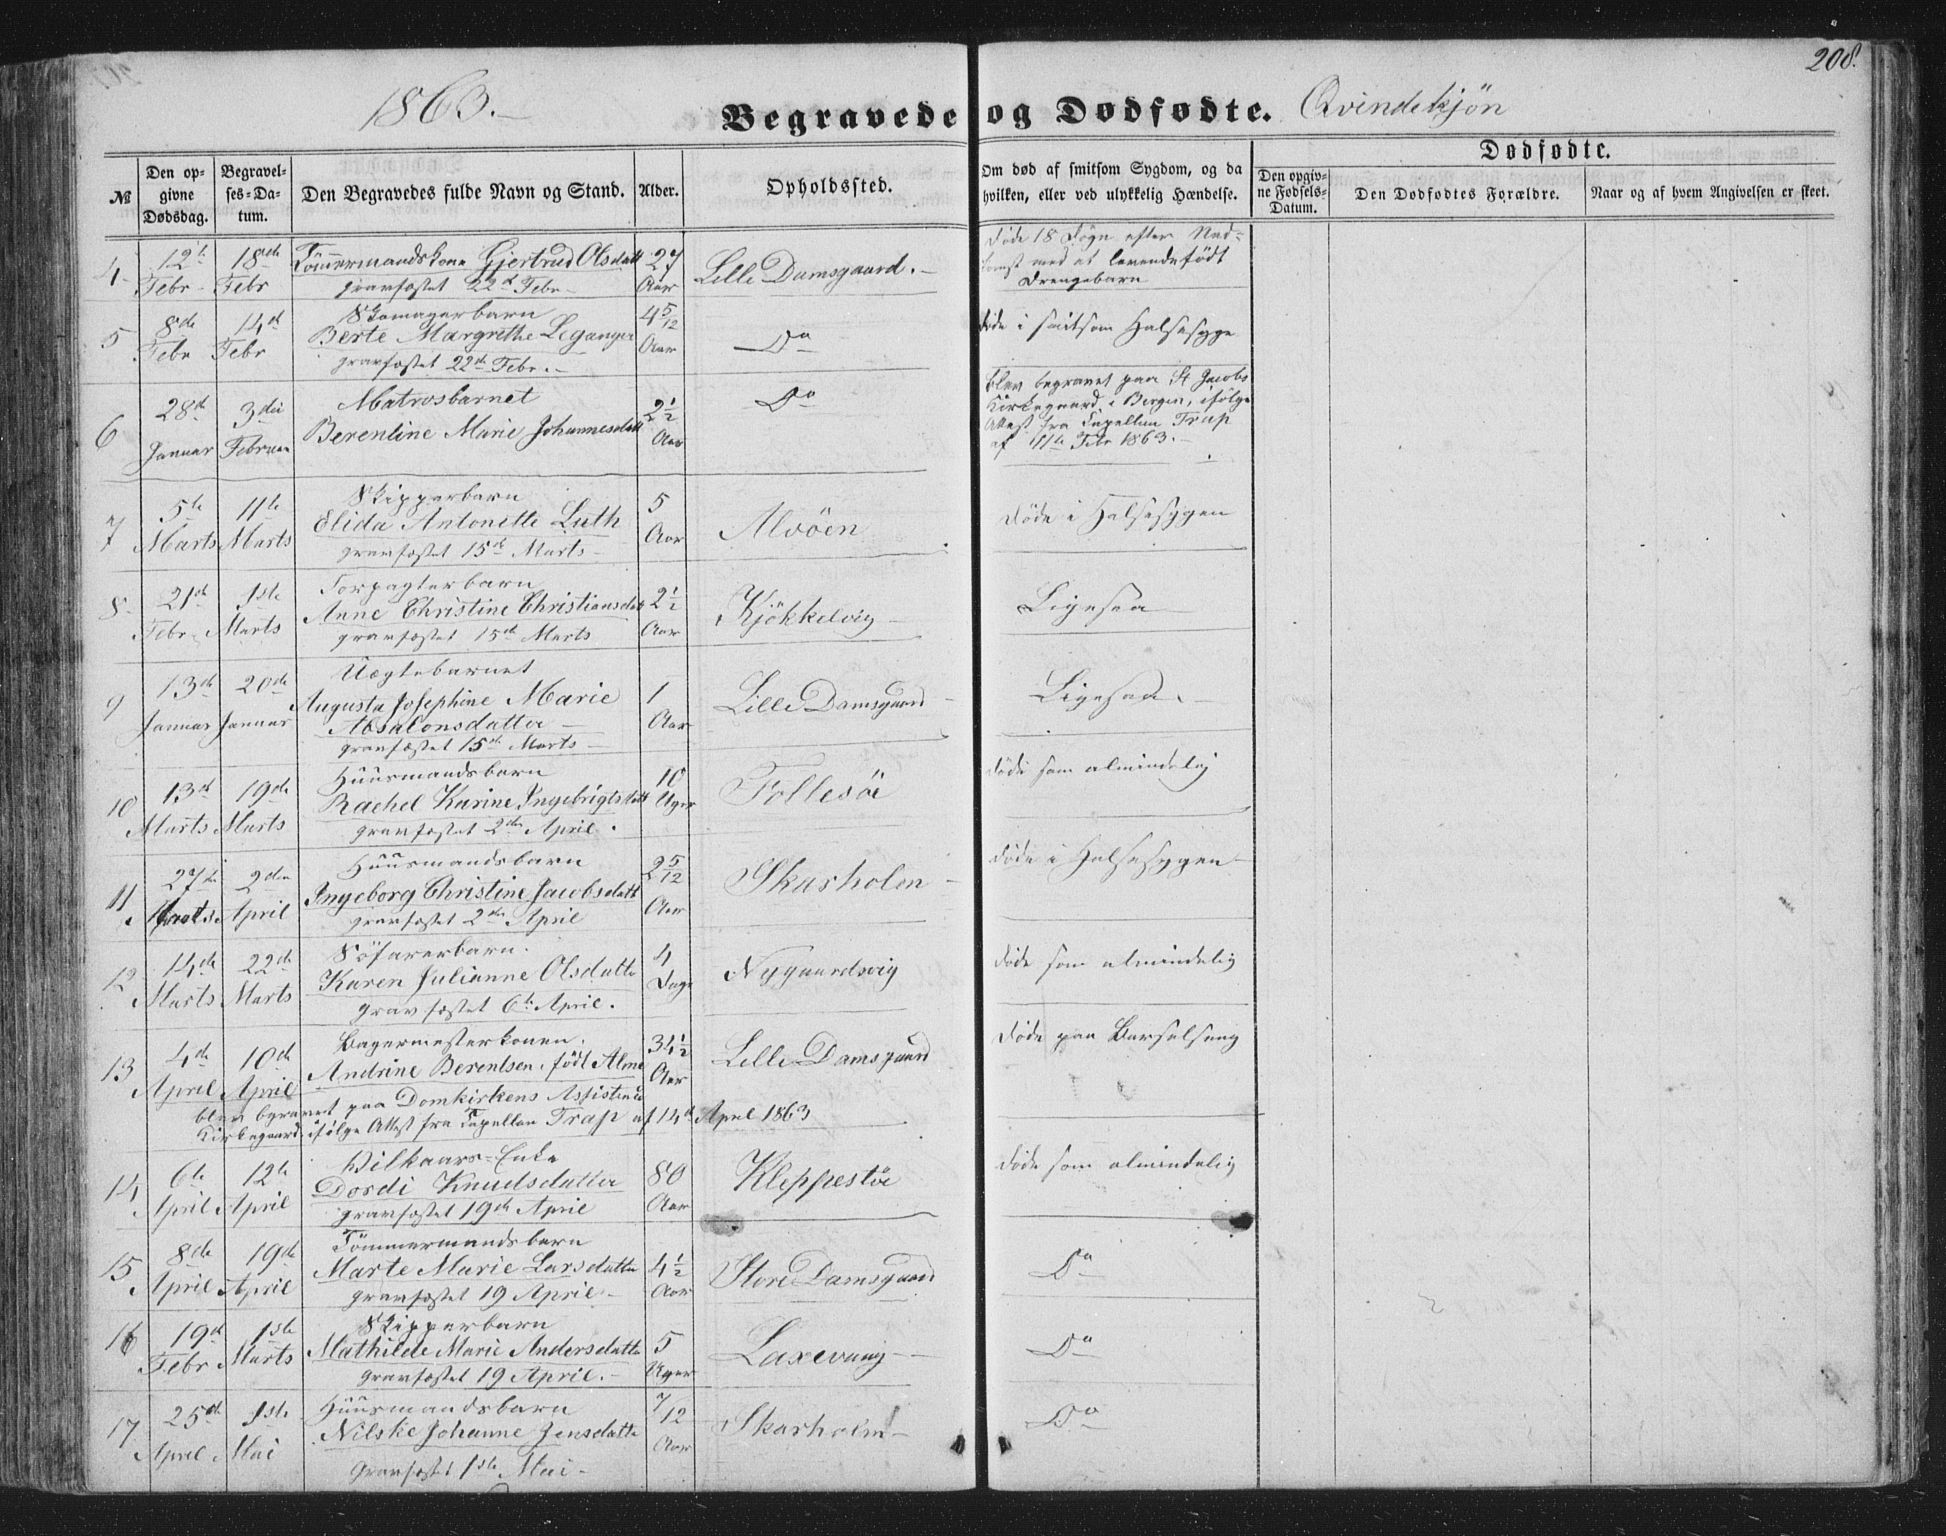 208.
1863.
Begravede og Dødfødte. Qvindekjön
№
Den opgivne Dødsdag.
Begravelses-Datum.
Den Begravedes fulde Navn og Stand.
Alder.
Opholdssted.
Om død af smitsom Sygdom, og da hvilken, eller ved ulykkelig Hændelse.
Dødfødte.
Den opgivne Fødsels-Datum.
Den Dødfødtes Forældre.
Naar og af hvem Angivelsen er skeet.
4 12te Febr 18de Febr Tömmermandskone Gjertrud Olsdatt 27 Aar Lille Damsgaard.
gravfæstet 22de Febr
Døde 18 Døgn efter Nedkomst med et levendefödt Drengebarn
5 8de Febr 14de Febr Skomagerbarn 4 5/12 Aar Do
Berte Margrethe Leganger
gravfæstet 22de Febr.
döde i smitsom Halssyge
6 28de Januar 3die Februar Matrosbarnet 2½ Aar Do
Berentine Marie Johannesdatt
blev begravet paa St Jacobs Kirkegaard i Bergen, ifølge Attest fra Capellan Trap af 11te Febr 1863.
7 5te Marts 11te Marts Skipperbarn 5 Aar Alvöen
Elida Antonette Luth
gravfæstet 15de Marts
döde i Halssygen
8 21de Febr 1ste Marts Forpagterbarn 2½ Aar Kjökkelvig
Anne Christine Christiansdatt
gravfæstet 15de Marts
Ligesaa
9 13de Januar 20de Januar Uægtebarnet 1 Aar Lille Damsgaard
Augusta Josephine Marie
Absalonsdatter
gravfæstet 15de Marts
Ligesaa
10 13de Marts 19de Marts Huusmandsbarn 10 Uger Follesöe
Rachel Karine Ingebrigtsdatt
gravfæstet 2den April.
döde som almindelig
11 27de Marts 2den April Huusmandsbarn 2 5/12 Aar Skarholen
Ingeborg Christine Jacobsdatt
gravfæstet 2den April
döde i Halssygen
12 14de Marts 22de Marts Söfarerbarn. 4 Dage Nygaardsvig
Karen Julianne Olsdatte
gravfæstet 6te April.
döde som almindelig
13 4de April 10de April Bagermesterkonen. 34½ Aar Lille Damsgaard
Andrine Berentsen, född Alme
blev begravet paa Domkirkens Assistents
Kirkegaard, ifølge Attest fra Capellan Trap af 14de April 1863
döde paa Barselseng
14 6te April 12te April Vilkaars-Enke 80 Aar Kleppestöe
Dordi Knudsdatter
gravfæstet 19de April
döde som almindelig
15 8de April 19de April Tömmermandsbarn 4½ Aar Store Damsgaard
Marte Marie Larsdatte
gravfæstet 19 April.
Do
16 19de Febr 1ste Marts Skipperbarn 5 Uger Laxevaag
Mathilde Marie Andersdatte
gravfæstet 19 April.
Do
17 25de April 1ste Mai Huusmandsbarn 7/12 Aar Skarholm
Nilske Johanne Jensdatte
gravfæstet 1ste Mai
Do